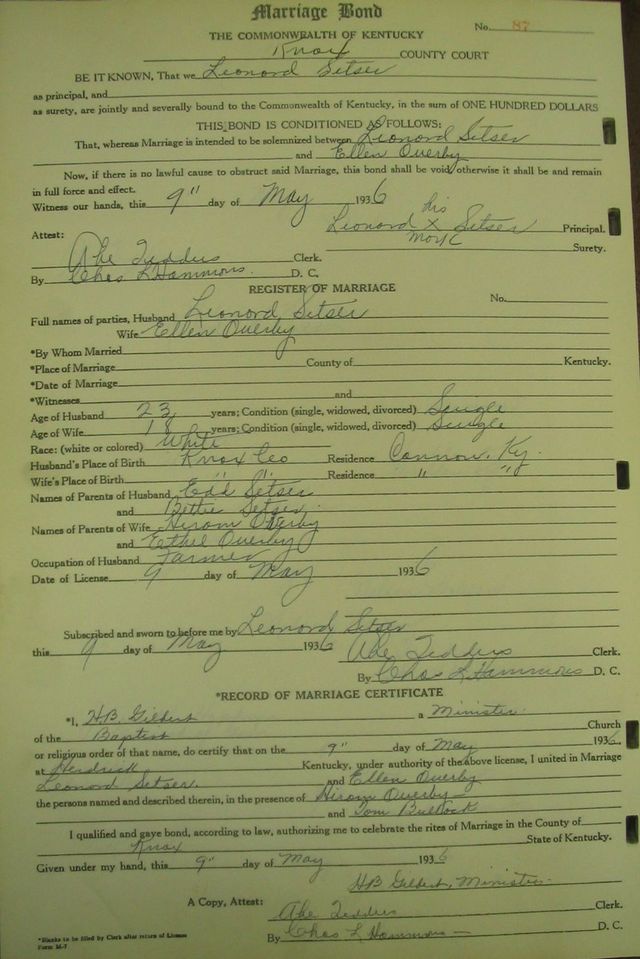 Marriage Bond
No. 87
THE COMMONWEALTH OF KENTUCKY
Knox COUNTY COURT
BE IT KNOWN, That we Leonord Setser
as principal, and
as surety, are jointly and severally bound to the Commonwealth of Kentucky, in the sum of ONE HUNDRED DOLLARS
THIS BOND IS CONDITIONED AS FOLLOWS:
That, whereas Marriage is intended to be solemnized between Leonord Setser
and Ellen Overby
Now, if there is no lawful cause to obstruct said Marriage, this bond shall be void, otherwise it shall be and remain
in full force and effect.
Witness our hands, this 9" day of May 1936
his
Leonord X Setser Principal.
mark
Attest: Surety.
Abe Tedders Clerk.
By Chas L Hammons. D. C.
REGISTER OF MARRIAGE
No.
Full names of parties, Husband Leonord Setser
Wife Ellen Overby
*By Whom Married
*Place of Marriage County of Kentucky.
*Date of Marriage
*Witnesses and
Age of Husband 23 years; Condition (single, widowed, divorced) Single
Age of Wife 18 years; Condition (single, widowed, divorced) Single
Race: (white or colored) White
Husband's Place of Birth Knox Co Residence Cannon, Ky.
Wife's Place of Birth " " Residence " "
Names of Parents of Husband Edd Setser
and Bettie Setser
Names of Parents of Wife Hirom Overby
and Ethel Overby
Occupation of Husband Farmer
Date of License 9 day of May 1936
Subscribed and sworn to before me by Leonord Setser
this 9 day of May 1936 Abe Tedders Clerk.
By Chas L Hammons D. C.
*RECORD OF MARRIAGE CERTIFICATE
*I, H.B. Gilbert a Minister.
of the Baptist Church
or religious order of that name, do certify that on the 9" day of May 1936
at Kentucky, under authority of the above license, I united in Marriage
Leonord Setser. and Ellen Overby
the persons named and described therein, in the presence of Hirom Overby
and Tom Bullock
I qualified and gave bond, according to law, authorizing me to celebrate the rites of Marriage in the County of
Knox State of Kentucky.
Given under my hand, this 9" day of May 1936
HB Gilbert, Minister.
A Copy, Attest: Abe Tedders Clerk.
By Chas L Hammons D. C.
*Blanks to be filed by Clerk after return of License
Form M-7